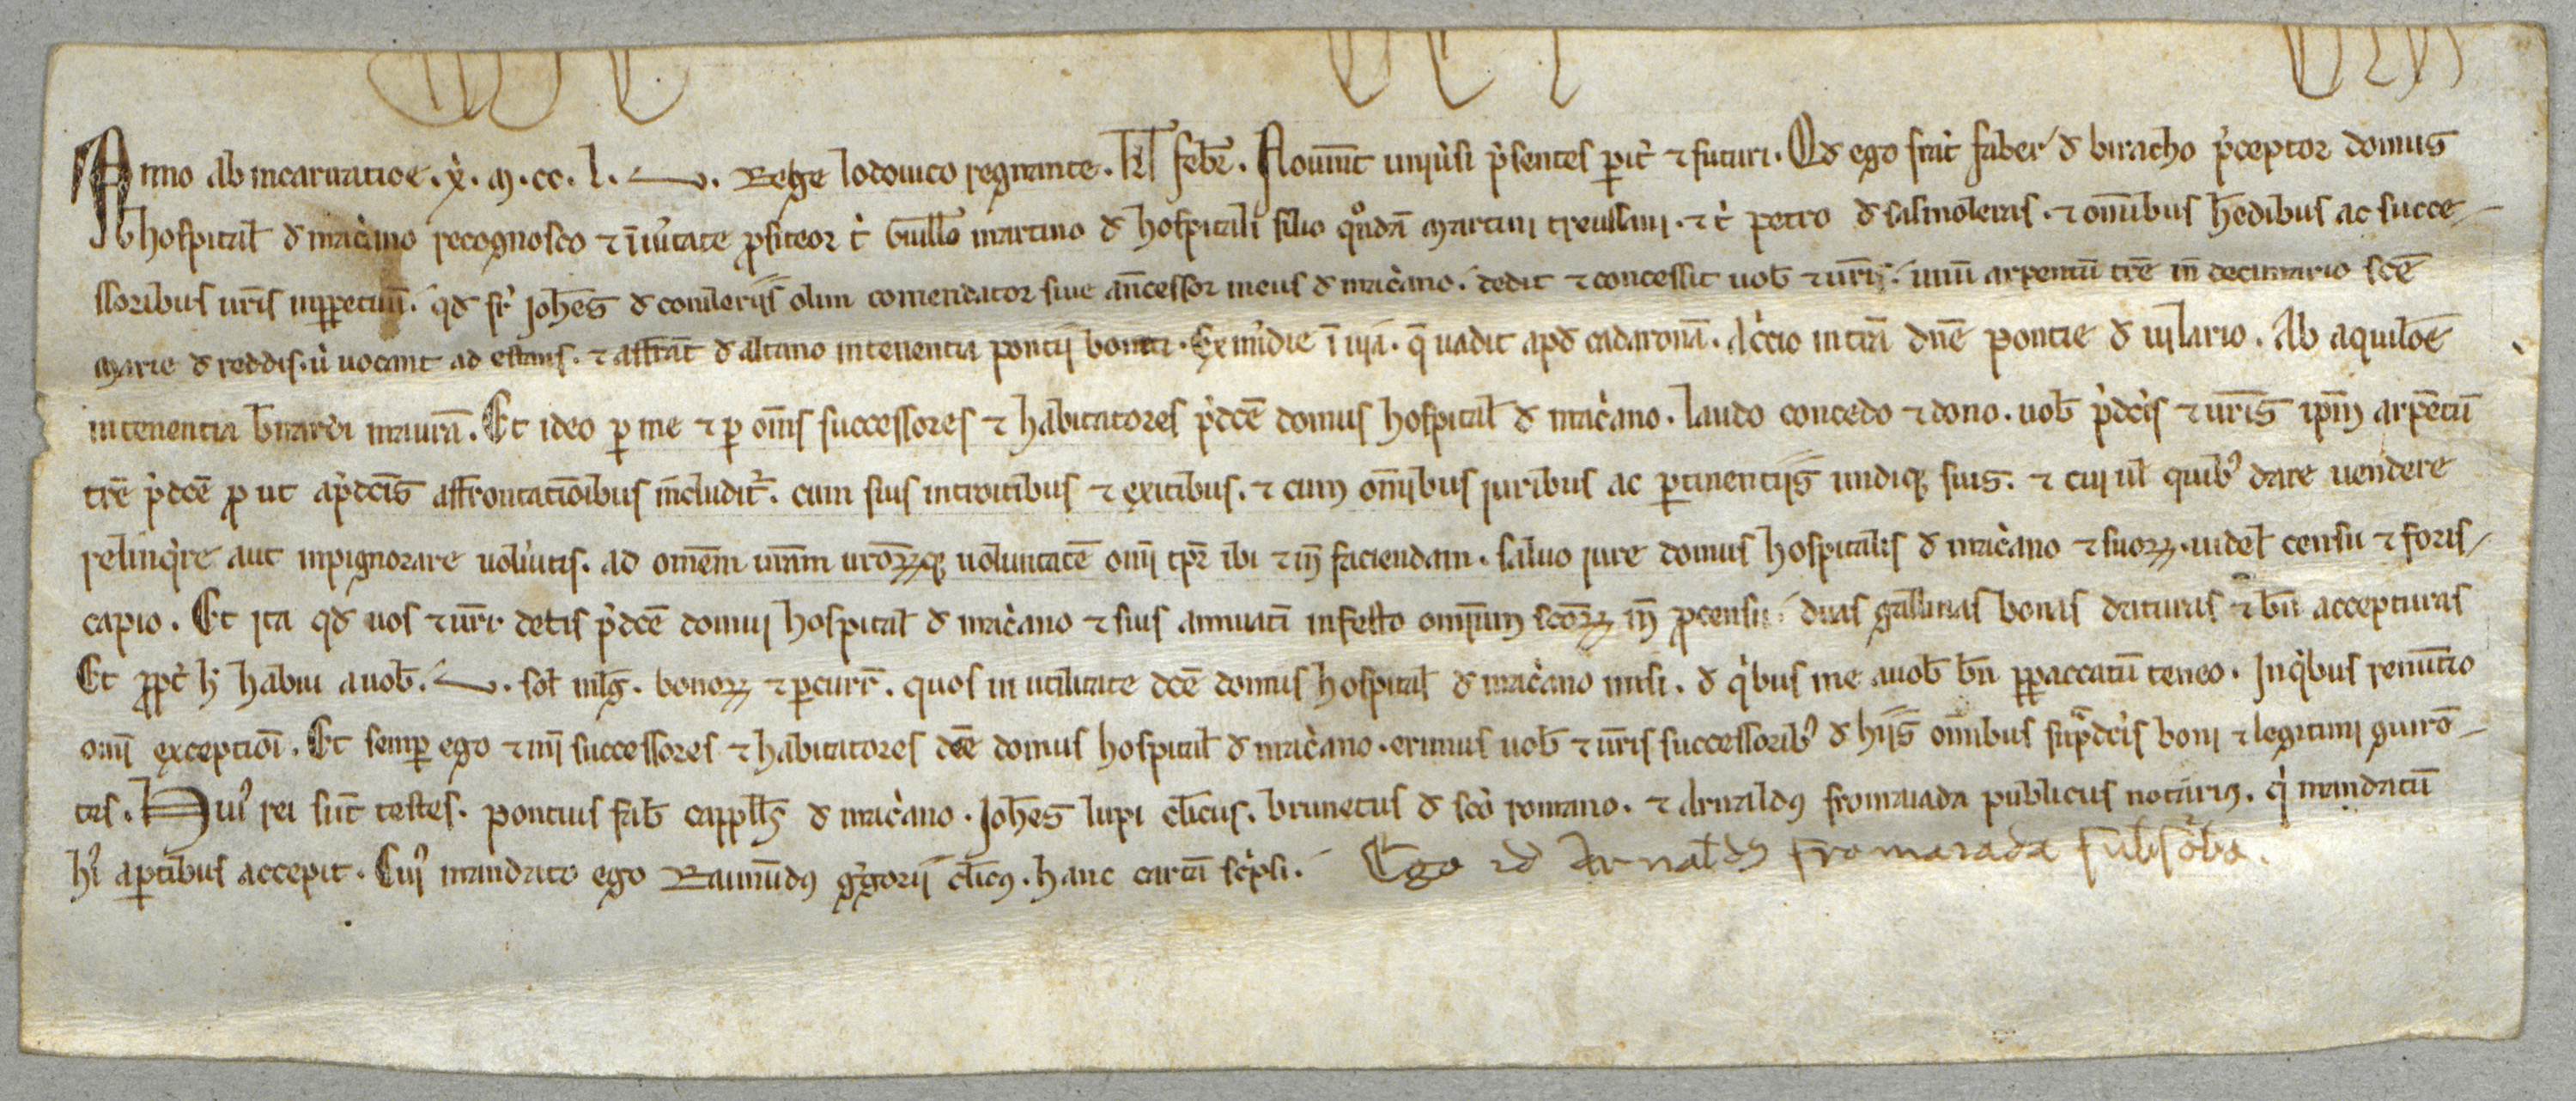 Anno ab incarnatioe. x̓. m. cc. l. v. Rege lodouico regnante. kl̄ febr̄. Nouerint uniu̓si p̓sentes pit̓ ⁊ futuri. Qd ego frat̓ faber d̓ biracho p̓ceptor domus
hospital̓ d̓ mac̓ano recognosco ⁊ ī ūitate ꝓfiteor t̓ Guill̄o martino d̓ hospitali filio qͦndā martini treuillani. ⁊ t̓ petro d̓ salmoleras. ⁊ om̄ibus h̄edibus ac succe-
ssoribus ur̄is inꝑpetuū. qd fr̓ Joh̄es d̓ comileriis olim comendator siue an̄cessor meus d̓ mac̓ano. dedit ⁊ concessit uob̄ ⁊ ur̄is. unū arpentū tr̄e in decimario sc̄e
marie d̓ reddis. u̓ uocant ad estans. ⁊ affr̄at̄ d̓ altano in tenentia pontii boneti. Ex m̓idie ī uia. q̄ uadit apd cadaronā. A c̓cio in t̓rā dn̄e pontie d̓ uilario. Ab aquiloē
in tenentia b̄nardi maurā. Et ideo ꝑ me ⁊ ꝑ om̄s successores ⁊ habitatores p̓dc̄e domus hospital̓ d̓ mac̓ano. laudo concedo ⁊ dono. uob̄ p̓dc̄is ⁊ ur̄is ip̄m arpētū
tr̄e p̓dc̄e ꝓ ut a p̓dc̄is affrontationibus includit᷑. cum suis introitibus ⁊ exitibus. ⁊ cum om̄ibus juribus ac ꝑtinentiis undiqꝫ suis. ⁊ cui ul̄ quibꝰ dare uendere
relinq̓re aut inpignorare uolūitis. ad om̄em ur̄am ur̄oꝝqꝫ uoluntatē om̄i tp̄r ibi ⁊ in̄ faciendam. saluo jure domus hospitalis d̓ mac̓ano ⁊ suoꝝ. uidel̄ censu ⁊ foris-
capio. Et ita qd uos ⁊ ur̄i detis p̓dc̄e domui hospital̓ d̓ mac̓ano ⁊ suis annuatī in festo omnium sc̄oꝝ in̄ ꝓ censu duas gallinas bonas daturas ⁊ bn̄ accepturas
Et ꝓpt̓ h̓ habui a uob̄. v. sol̄ mlḡ. bonoꝝ ⁊ ꝑcurr̄. quos in utilitate dc̄e domus hospital̓ d̓ mac̓ano misi. d̓ q̓bus me a uob̄ bn̄ ꝑpaccatū teneo. In q̓bus renuntio
om̄i exceptioī. Et semꝑ ego ⁊ m̄i successores ⁊ habitatores dc̄e domus hospital̓ d̓ mac̓ano. erimus uob̄ ⁊ ur̄is successoribꝰ d̓ hiis om̄ibus sup̄dc̄is boni ⁊ legitimi guirē-
tes. Huiꝰ rei sūt testes. pontius fab̄ cappll̄s d̓ mac̓ano. Joh̄es lupi cl̄icus. brunetus d̓ sc̄o romano. ⁊ Arnaldꝰ fromaiada publicus notariꝰ. q̓ mandatū
hꝰ a ꝑtibus accepit. Cuiꝰ mandato ego Raimūdꝰ g̓gorii cl̄icꝰ. hanc cartā sc̓psi. Ego id̄ Arnaldꝰ fromaiada subsc̓bo.